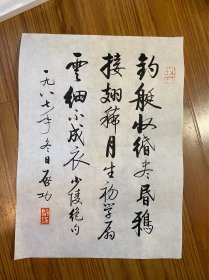 钓艇收缗尽昏鸦
接翅稀月生初学扇
云细不成衣少陵绝句
一九八七年冬日启功